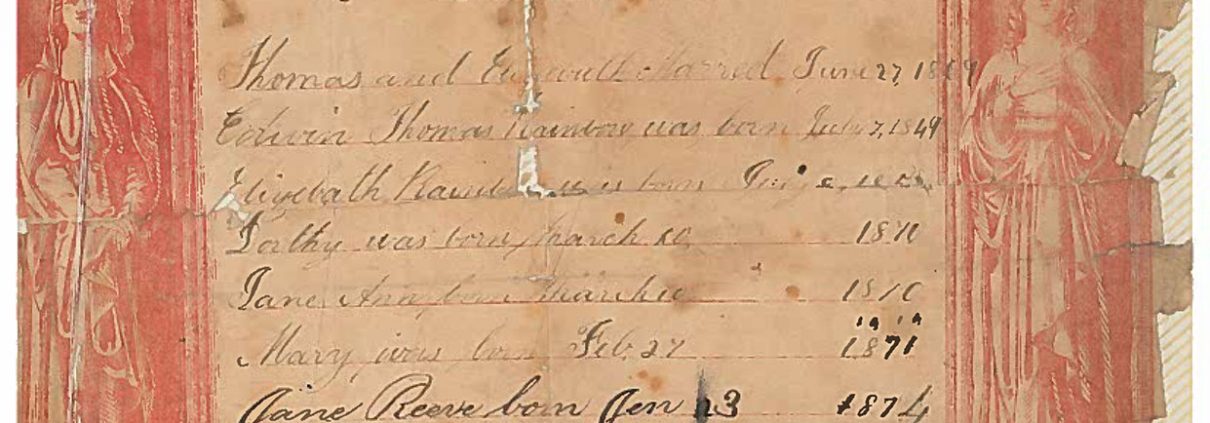 Thomas and Marred June 27, 1869
Edwin Thomas Rainbow was born July 7, 1849
Elizebath was born
Dorthy was born March 10, 1870
Jane Ann born March 10 1870
Mary was born Feb. 27 1871
Jane Reeve born Jen 23 1874